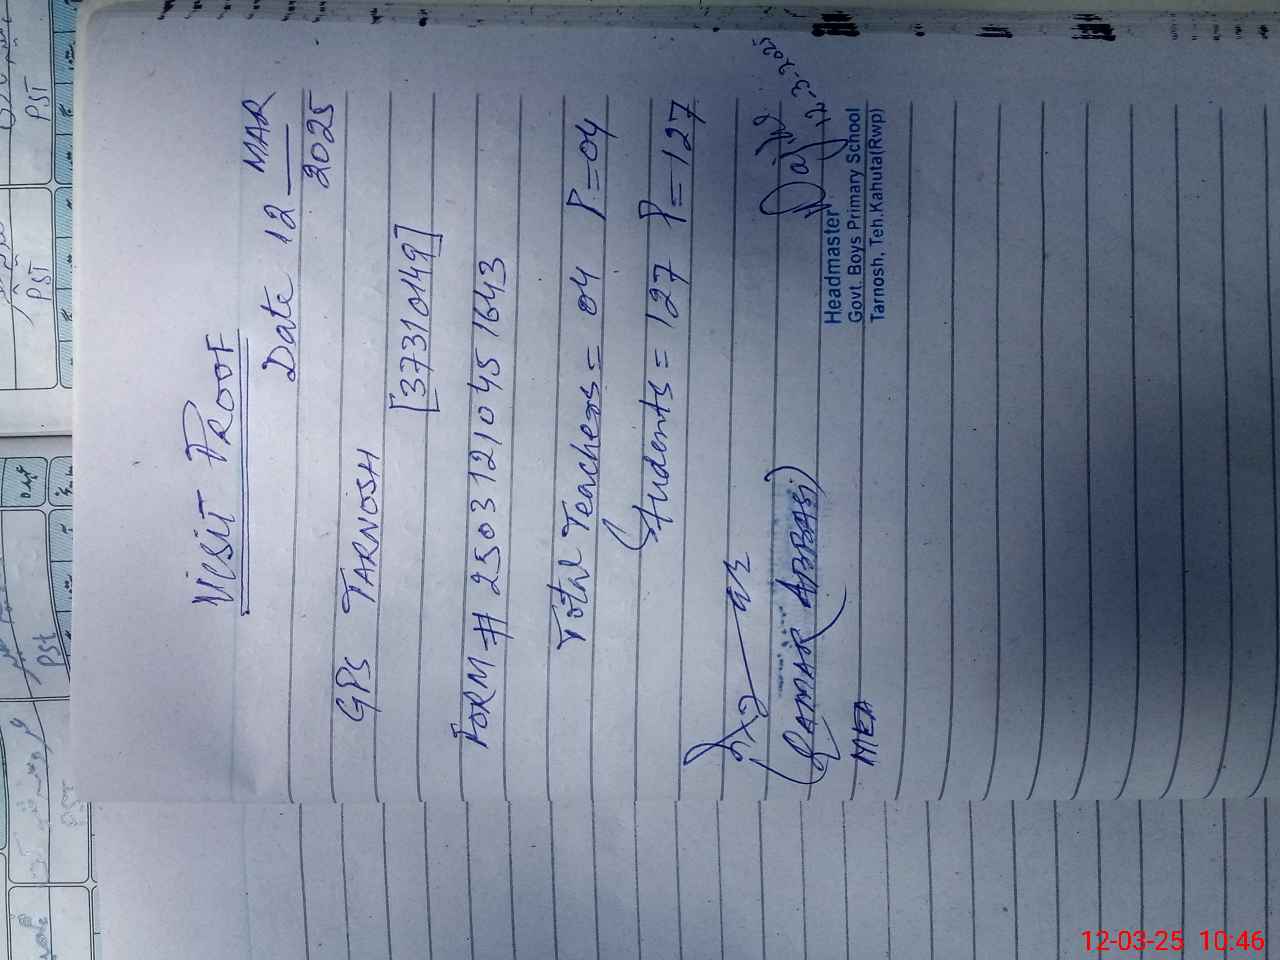 VISIT PROOF
Date 12 MAR
2025
GPS TARNOSH
[37310149]
FORM # 25031210451643
Total Teachers = 04 P = 04
Students = 127 P = 127
12-3-2025
(QAMAR ABBASI)
MEA
Headmaster
Govt. Boys Primary School
Tarnosh, Teh.Kahuta(Rwp)
PST
PST
PST
12-03-25 10:46